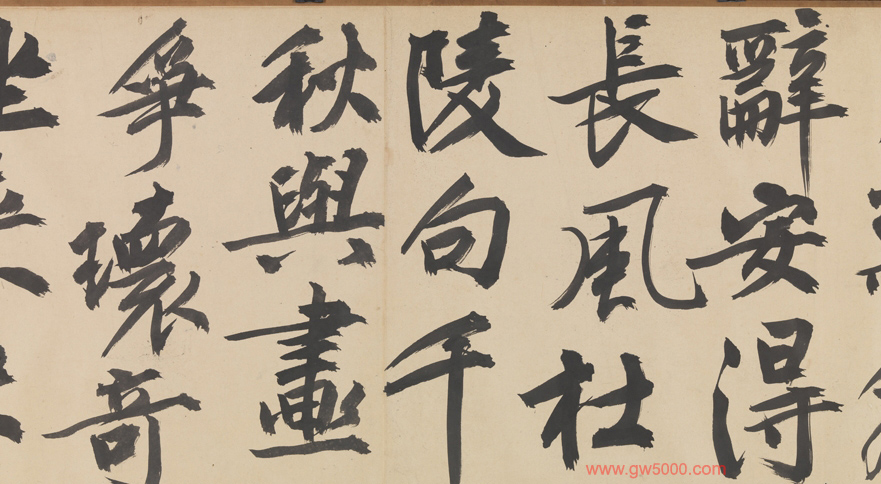 辭安得
長風杜
陵句千
秋與畫
爭瓌奇
www.gw5000.com